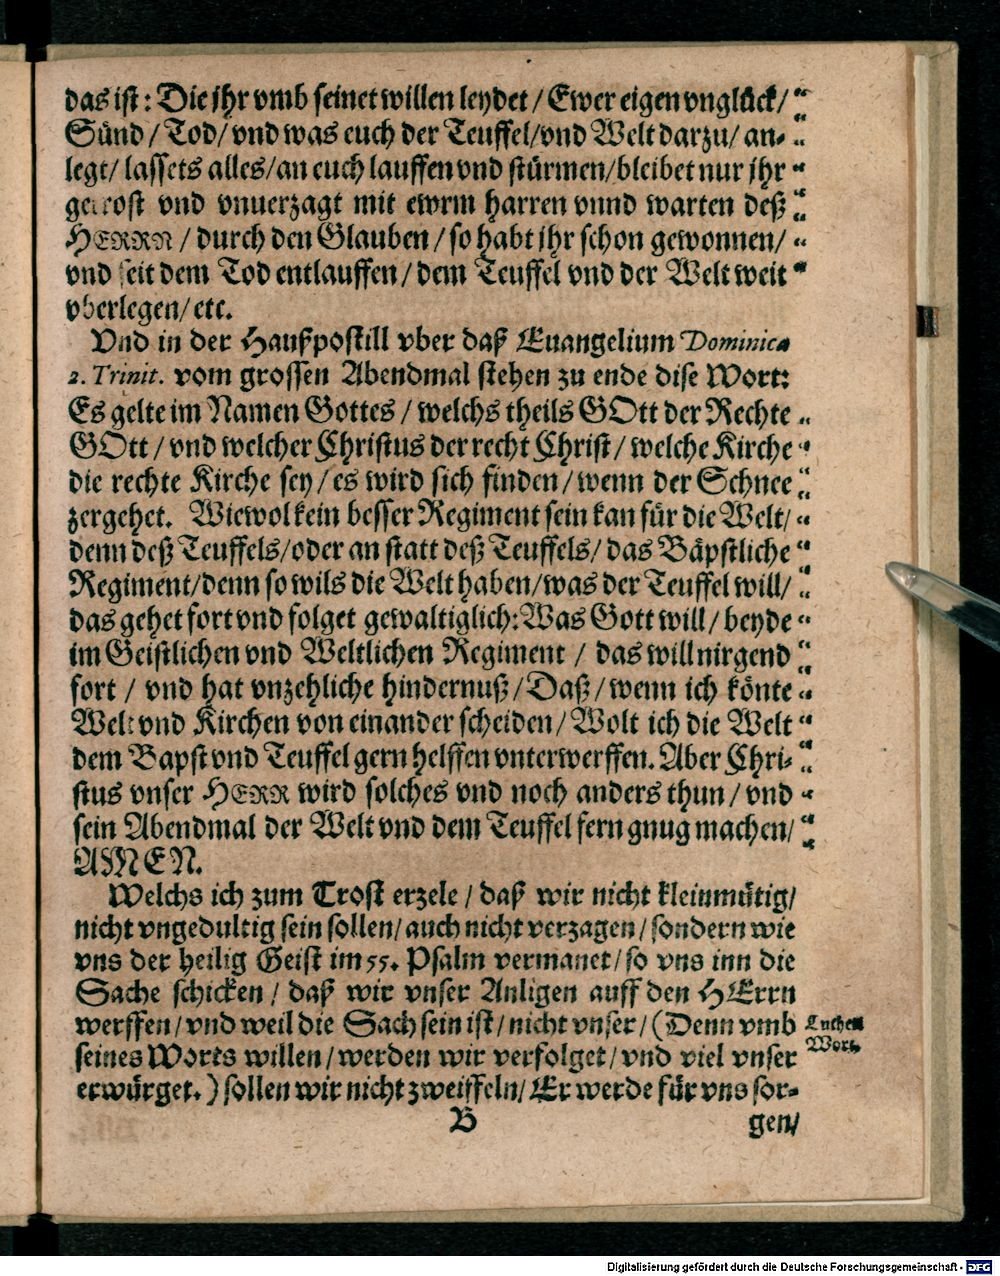 das ist: Die jhr vmb seinet willen leydet / Ewer eigen vnglück / „
Sünd / Tod / vnd was euch der Teuffel / vnd Welt darzu / an- „
legt / lassets alles / an euch lauffen vnd stürmen / bleibet nur jhr „
getrost vnd vnuerzagt mit ewrm harren vnnd warten deß „
HERRN / durch den Glauben / so habt jhr schon gewonnen / „
vnd seit dem Tod entlauffen / dem Teuffel vnd der Welt weit „
vberlegen / etc.
Vnd in der Haußpostill vber daß Euangelium Dominica
2. Trinit. vom grossen Abendmal stehen zu ende dise Wort:
Es gelte im Namen Gottes / welchs theils GOtt der Rechte „
GOtt / vnd welcher Christus der recht Christ / welche Kirche „
die rechte Kirche sey / es wird sich finden / wenn der Schnee „
zergehet. Wiewol kein besser Regiment sein kan für die Welt / „
denn deß Teuffels / oder an statt deß Teuffels / das Bäpstliche „
Regiment / denn so wils die Welt haben / was der Teuffel will / „
das gehet fort vnd folget gewaltiglich: Was Gott will / beyde „
im Geistlichen vnd Weltlichen Regiment / das will nirgend „
fort / vnd hat vnzehliche hindernuß / Daß / wenn ich könte „
Welt vnd Kirchen von einander scheiden / Wolt ich die Welt „
dem Bapst vnd Teuffel gern helffen vnterwerffen. Aber Chri- „
stus vnser HERR wird solches vnd noch anders thun / vnd „
sein Abendmal der Welt vnd dem Teuffel fern gnug machen / „
AMEN.
Welchs ich zum Trost erzele / daß wir nicht kleinmütig /
nicht vngedultig sein sollen / auch nicht verzagen / sondern wie
vns der heilig Geist im 55. Psalm vermanet / so vns inn die
Sache schicken / daß wir vnser Anligen auff den HErrn
werffen / vnd weil die Sach sein ist / nicht vnser / (Denn vmb
seines Worts willen / werden wir verfolget / vnd viel vnser
erwürget.) sollen wir nicht zweiffeln / Er werde für vns sor-
Luthers
Wort.
B
gen /
Digitalisierung gefördert durch die Deutsche Forschungsgemeinschaft - DFG